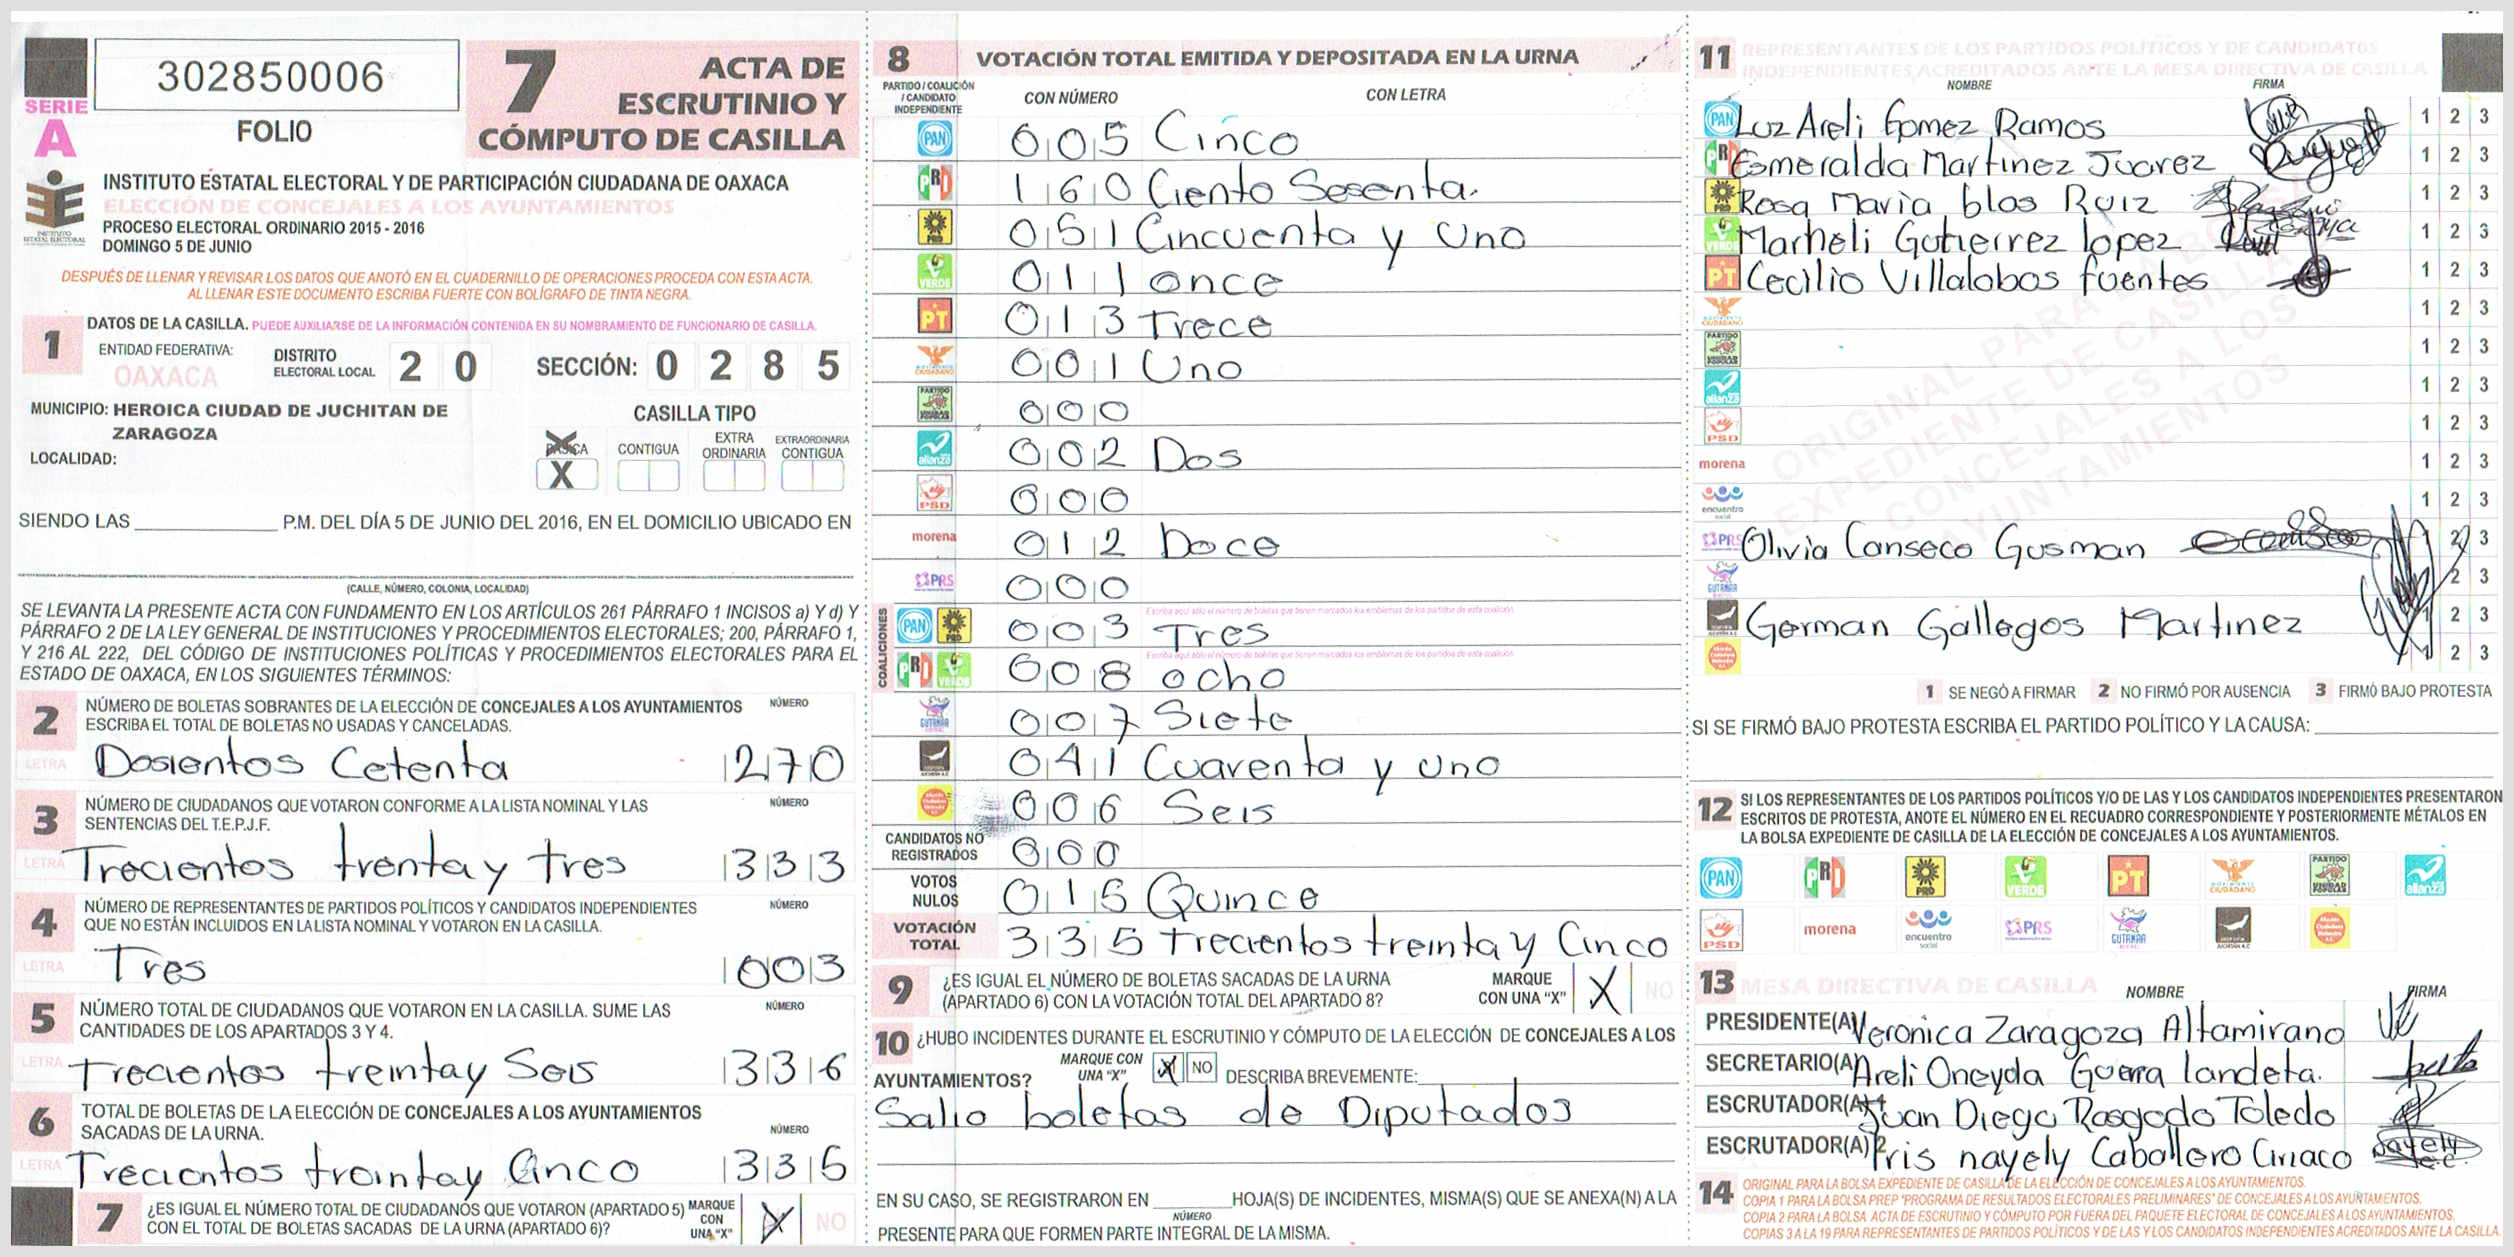 302850006
SERIE
A
FOLIO
7 ACTA DE
ESCRUTINIO Y
CÓMPUTO DE CASILLA
INSTITUTO ESTATAL ELECTORAL Y DE PARTICIPACIÓN CIUDADANA DE OAXACA
ELECCIÓN DE CONCEJALES A LOS AYUNTAMIENTOS
PROCESO ELECTORAL ORDINARIO 2015 - 2016
DOMINGO 5 DE JUNIO
DESPUÉS DE LLENAR Y REVISAR LOS DATOS QUE ANOTÓ EN EL CUADERNILLO DE OPERACIONES PROCEDA CON ESTA ACTA.
AL LLENAR ESTE DOCUMENTO ESCRIBA FUERTE CON BOLÍGRAFO DE TINTA NEGRA.
1 DATOS DE LA CASILLA. PUEDE AUXILIARSE DE LA INFORMACIÓN CONTENIDA EN SU NOMBRAMIENTO DE FUNCIONARIO DE CASILLA.
ENTIDAD FEDERATIVA: OAXACA
DISTRITO ELECTORAL LOCAL 2 0 SECCIÓN: 0 2 8 5
MUNICIPIO: HEROICA CIUDAD DE JUCHITAN DE
ZARAGOZA
LOCALIDAD:
CASILLA TIPO
BÁSICA CONTIGUA EXTRA ORDINARIA EXTRAORDINARIA CONTIGUA
X
SIENDO LAS P.M. DEL DÍA 5 DE JUNIO DEL 2016, EN EL DOMICILIO UBICADO EN
(CALLE, NÚMERO, COLONIA, LOCALIDAD)
SE LEVANTA LA PRESENTE ACTA CON FUNDAMENTO EN LOS ARTÍCULOS 261 PÁRRAFO 1 INCISOS a) Y d) Y
PÁRRAFO 2 DE LA LEY GENERAL DE INSTITUCIONES Y PROCEDIMIENTOS ELECTORALES; 200, PÁRRAFO 1,
Y 216 AL 222, DEL CÓDIGO DE INSTITUCIONES POLÍTICAS Y PROCEDIMIENTOS ELECTORALES PARA EL
ESTADO DE OAXACA, EN LOS SIGUIENTES TÉRMINOS:
2 NÚMERO DE BOLETAS SOBRANTES DE LA ELECCIÓN DE CONCEJALES A LOS AYUNTAMIENTOS NÚMERO
ESCRIBA EL TOTAL DE BOLETAS NO USADAS Y CANCELADAS.
LETRA Dosientos Cetenta 270
3 NÚMERO DE CIUDADANOS QUE VOTARON CONFORME A LA LISTA NOMINAL Y LAS NÚMERO
SENTENCIAS DEL T.E.P.J.F.
LETRA Trecientos trenta y tres 333
4 NÚMERO DE REPRESENTANTES DE PARTIDOS POLÍTICOS Y CANDIDATOS INDEPENDIENTES NÚMERO
QUE NO ESTÁN INCLUIDOS EN LA LISTA NOMINAL Y VOTARON EN LA CASILLA.
LETRA Tres 003
5 NÚMERO TOTAL DE CIUDADANOS QUE VOTARON EN LA CASILLA. SUME LAS NÚMERO
CANTIDADES DE LOS APARTADOS 3 Y 4.
LETRA Trecientos treinta y Seis 336
6 TOTAL DE BOLETAS DE LA ELECCIÓN DE CONCEJALES A LOS AYUNTAMIENTOS
SACADAS DE LA URNA. NÚMERO
LETRA Trecientos treinta y Cinco 335
7 ¿ES IGUAL EL NÚMERO TOTAL DE CIUDADANOS QUE VOTARON (APARTADO 5) MARQUE CON UNA "X" X NO
CON EL TOTAL DE BOLETAS SACADAS DE LA URNA (APARTADO 6)?
8 VOTACIÓN TOTAL EMITIDA Y DEPOSITADA EN LA URNA
PARTIDO / COALICIÓN / CANDIDATO INDEPENDIENTE CON NÚMERO CON LETRA
PAN 005 Cinco
PRI 160 Ciento Sesenta.
PRD 051 Cincuenta y Uno
VERDE 011 once
PT 013 Trece
MOVIMIENTO CIUDADANO 001 Uno
PARTIDO UNIDAD POPULAR 000
alianza 002 Dos
PSD 000
morena 012 Doce
PRS 000
COALICIONES
Escriba aquí sólo el número de boletas que tienen marcados los emblemas de los partidos de esta coalición.
PAN PRD 003 Tres
Escriba aquí sólo el número de boletas que tienen marcados los emblemas de los partidos de esta coalición.
PRI VERDE 008 ocho
007 Siete
041 Cuarenta y uno
006 Seis
CANDIDATOS NO REGISTRADOS 000
VOTOS NULOS 015 Quince
VOTACIÓN TOTAL 335 trecientos treinta y Cinco
9 ¿ES IGUAL EL NÚMERO DE BOLETAS SACADAS DE LA URNA MARQUE CON UNA "X" X NO
(APARTADO 6) CON LA VOTACIÓN TOTAL DEL APARTADO 8?
10 ¿HUBO INCIDENTES DURANTE EL ESCRUTINIO Y CÓMPUTO DE LA ELECCIÓN DE CONCEJALES A LOS
AYUNTAMIENTOS? MARQUE CON UNA "X" X NO DESCRIBA BREVEMENTE:
Salio boletas de Diputados
EN SU CASO, SE REGISTRARON EN HOJA(S) DE INCIDENTES, MISMA(S) QUE SE ANEXA(N) A LA
NÚMERO
PRESENTE PARA QUE FORMEN PARTE INTEGRAL DE LA MISMA.
11 REPRESENTANTES DE LOS PARTIDOS POLÍTICOS Y DE CANDIDATOS
INDEPENDIENTES ACREDITADOS ANTE LA MESA DIRECTIVA DE CASILLA
NOMBRE FIRMA
PAN Luz Areli Gomez Ramos 1 2 3
PRI Esmeralda Martinez Juarez 1 2 3
PRD Rosa Maria blas Ruiz 1 2 3
VERDE Marheli Gutierrez lopez 1 2 3
PT Cecilio Villalobos fuentes 1 2 3
MOVIMIENTO CIUDADANO 1 2 3
PARTIDO UNIDAD POPULAR 1 2 3
alianza 1 2 3
PSD 1 2 3
morena 1 2 3
encuentro social 1 2 3
PRS Olivia Canseco Gusman 2 3
2 3
German Gallegos Martinez 1 2 3
1 2 3
ORIGINAL PARA LA BOLSA
EXPEDIENTE DE CASILLA
CONCEJALES A LOS
AYUNTAMIENTOS
1 SE NEGÓ A FIRMAR 2 NO FIRMÓ POR AUSENCIA 3 FIRMÓ BAJO PROTESTA
SI SE FIRMÓ BAJO PROTESTA ESCRIBA EL PARTIDO POLÍTICO Y LA CAUSA:
12 SI LOS REPRESENTANTES DE LOS PARTIDOS POLÍTICOS Y/O DE LAS Y LOS CANDIDATOS INDEPENDIENTES PRESENTARON
ESCRITOS DE PROTESTA, ANOTE EL NÚMERO EN EL RECUADRO CORRESPONDIENTE Y POSTERIORMENTE MÉTALOS EN
LA BOLSA EXPEDIENTE DE CASILLA DE LA ELECCIÓN DE CONCEJALES A LOS AYUNTAMIENTOS.
PAN PRI PRD VERDE PT MOVIMIENTO CIUDADANO PARTIDO UNIDAD POPULAR alianza
PSD morena encuentro social PRS
13 MESA DIRECTIVA DE CASILLA NOMBRE FIRMA
PRESIDENTE(A) Veronica Zaragoza Altamirano
SECRETARIO(A) Areli Oneyda Guerra landeta.
ESCRUTADOR(A) 1 Juan Diego Rasgado Toledo
ESCRUTADOR(A) 2 Iris nayely Caballero Ciriaco
14 ORIGINAL PARA LA BOLSA EXPEDIENTE DE CASILLA DE LA ELECCIÓN DE CONCEJALES A LOS AYUNTAMIENTOS.
COPIA 1 PARA LA BOLSA PREP "PROGRAMA DE RESULTADOS ELECTORALES PRELIMINARES" DE CONCEJALES A LOS AYUNTAMIENTOS.
COPIA 2 PARA LA BOLSA ACTA DE ESCRUTINIO Y CÓMPUTO POR FUERA DEL PAQUETE ELECTORAL DE CONCEJALES A LOS AYUNTAMIENTOS.
COPIAS 3 A LA 19 PARA REPRESENTANTES DE PARTIDOS POLÍTICOS Y DE LAS Y LOS CANDIDATOS INDEPENDIENTES ACREDITADOS ANTE LA CASILLA.